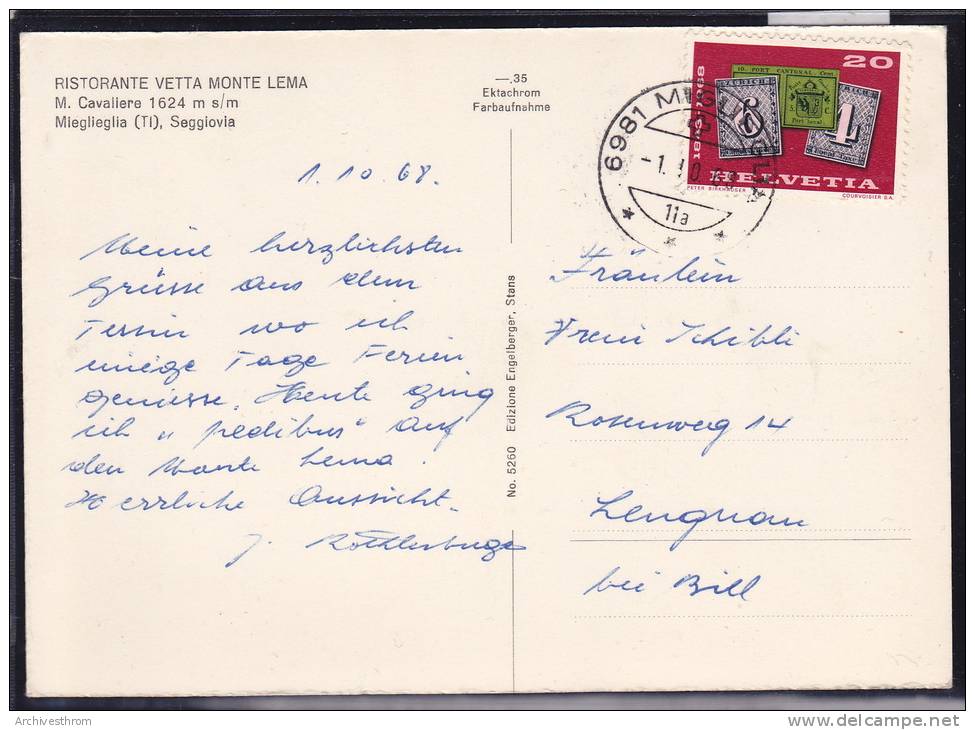 RISTORANTE VETTA MONTE LEMA
M. Cavaliere 1624 m s/m
Mieglieglia (TI), Seggiovia
—.35
Ektachrom
Farbaufnahme
1.10.68.
Meine herzlichsten
Grüsse aus dem
Tessin wo ich
einige Tage Ferien
geniesse. Heute ging
ich "pedibus" auf
den Monte Lema.
Herrliche Aussicht.
J.
No. 5260 Edizione Engelberger, Stans
20
1843-1968
10. PORT CANTONAL. Cent.
Port local
ZURICH
6
4
HELVETIA
PETER BIRKHÄUSER
COURVOISIER S.A.
6981 MIGLIEGLIA
-1.10.68
11a
Fräulein
Schibli
Rosenweg 14
Lengnau
bei Biel
Archivesthrom
www.delcampe.net